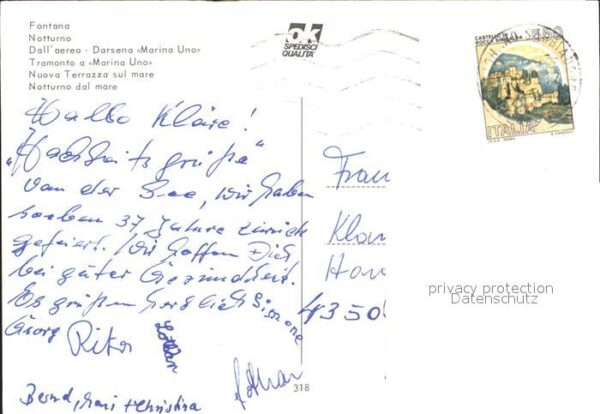 Fontana
Notturno
Dall'aereo - Darsena «Marina Uno»
Tramonto a «Marina Uno»
Nuova Terrazza sul mare
Notturno dal mare
ok
SPEDISCI
QUALITÀ
CASTELLO DI
ROCCA
550
ITALIA
Hallo Kläre!
„Hochzeitsgrüße"
von der See, wir haben
soeben 37 Jahre zurück
gefeiert. Wir hoffen Dich
bei guter Gesundheit.
Es grüßen herzlich Simone
Georg
Rita
Lothar
Bernd, + Christina
Frau
Klar
Han
4350
privacy protection
Datenschutz
318